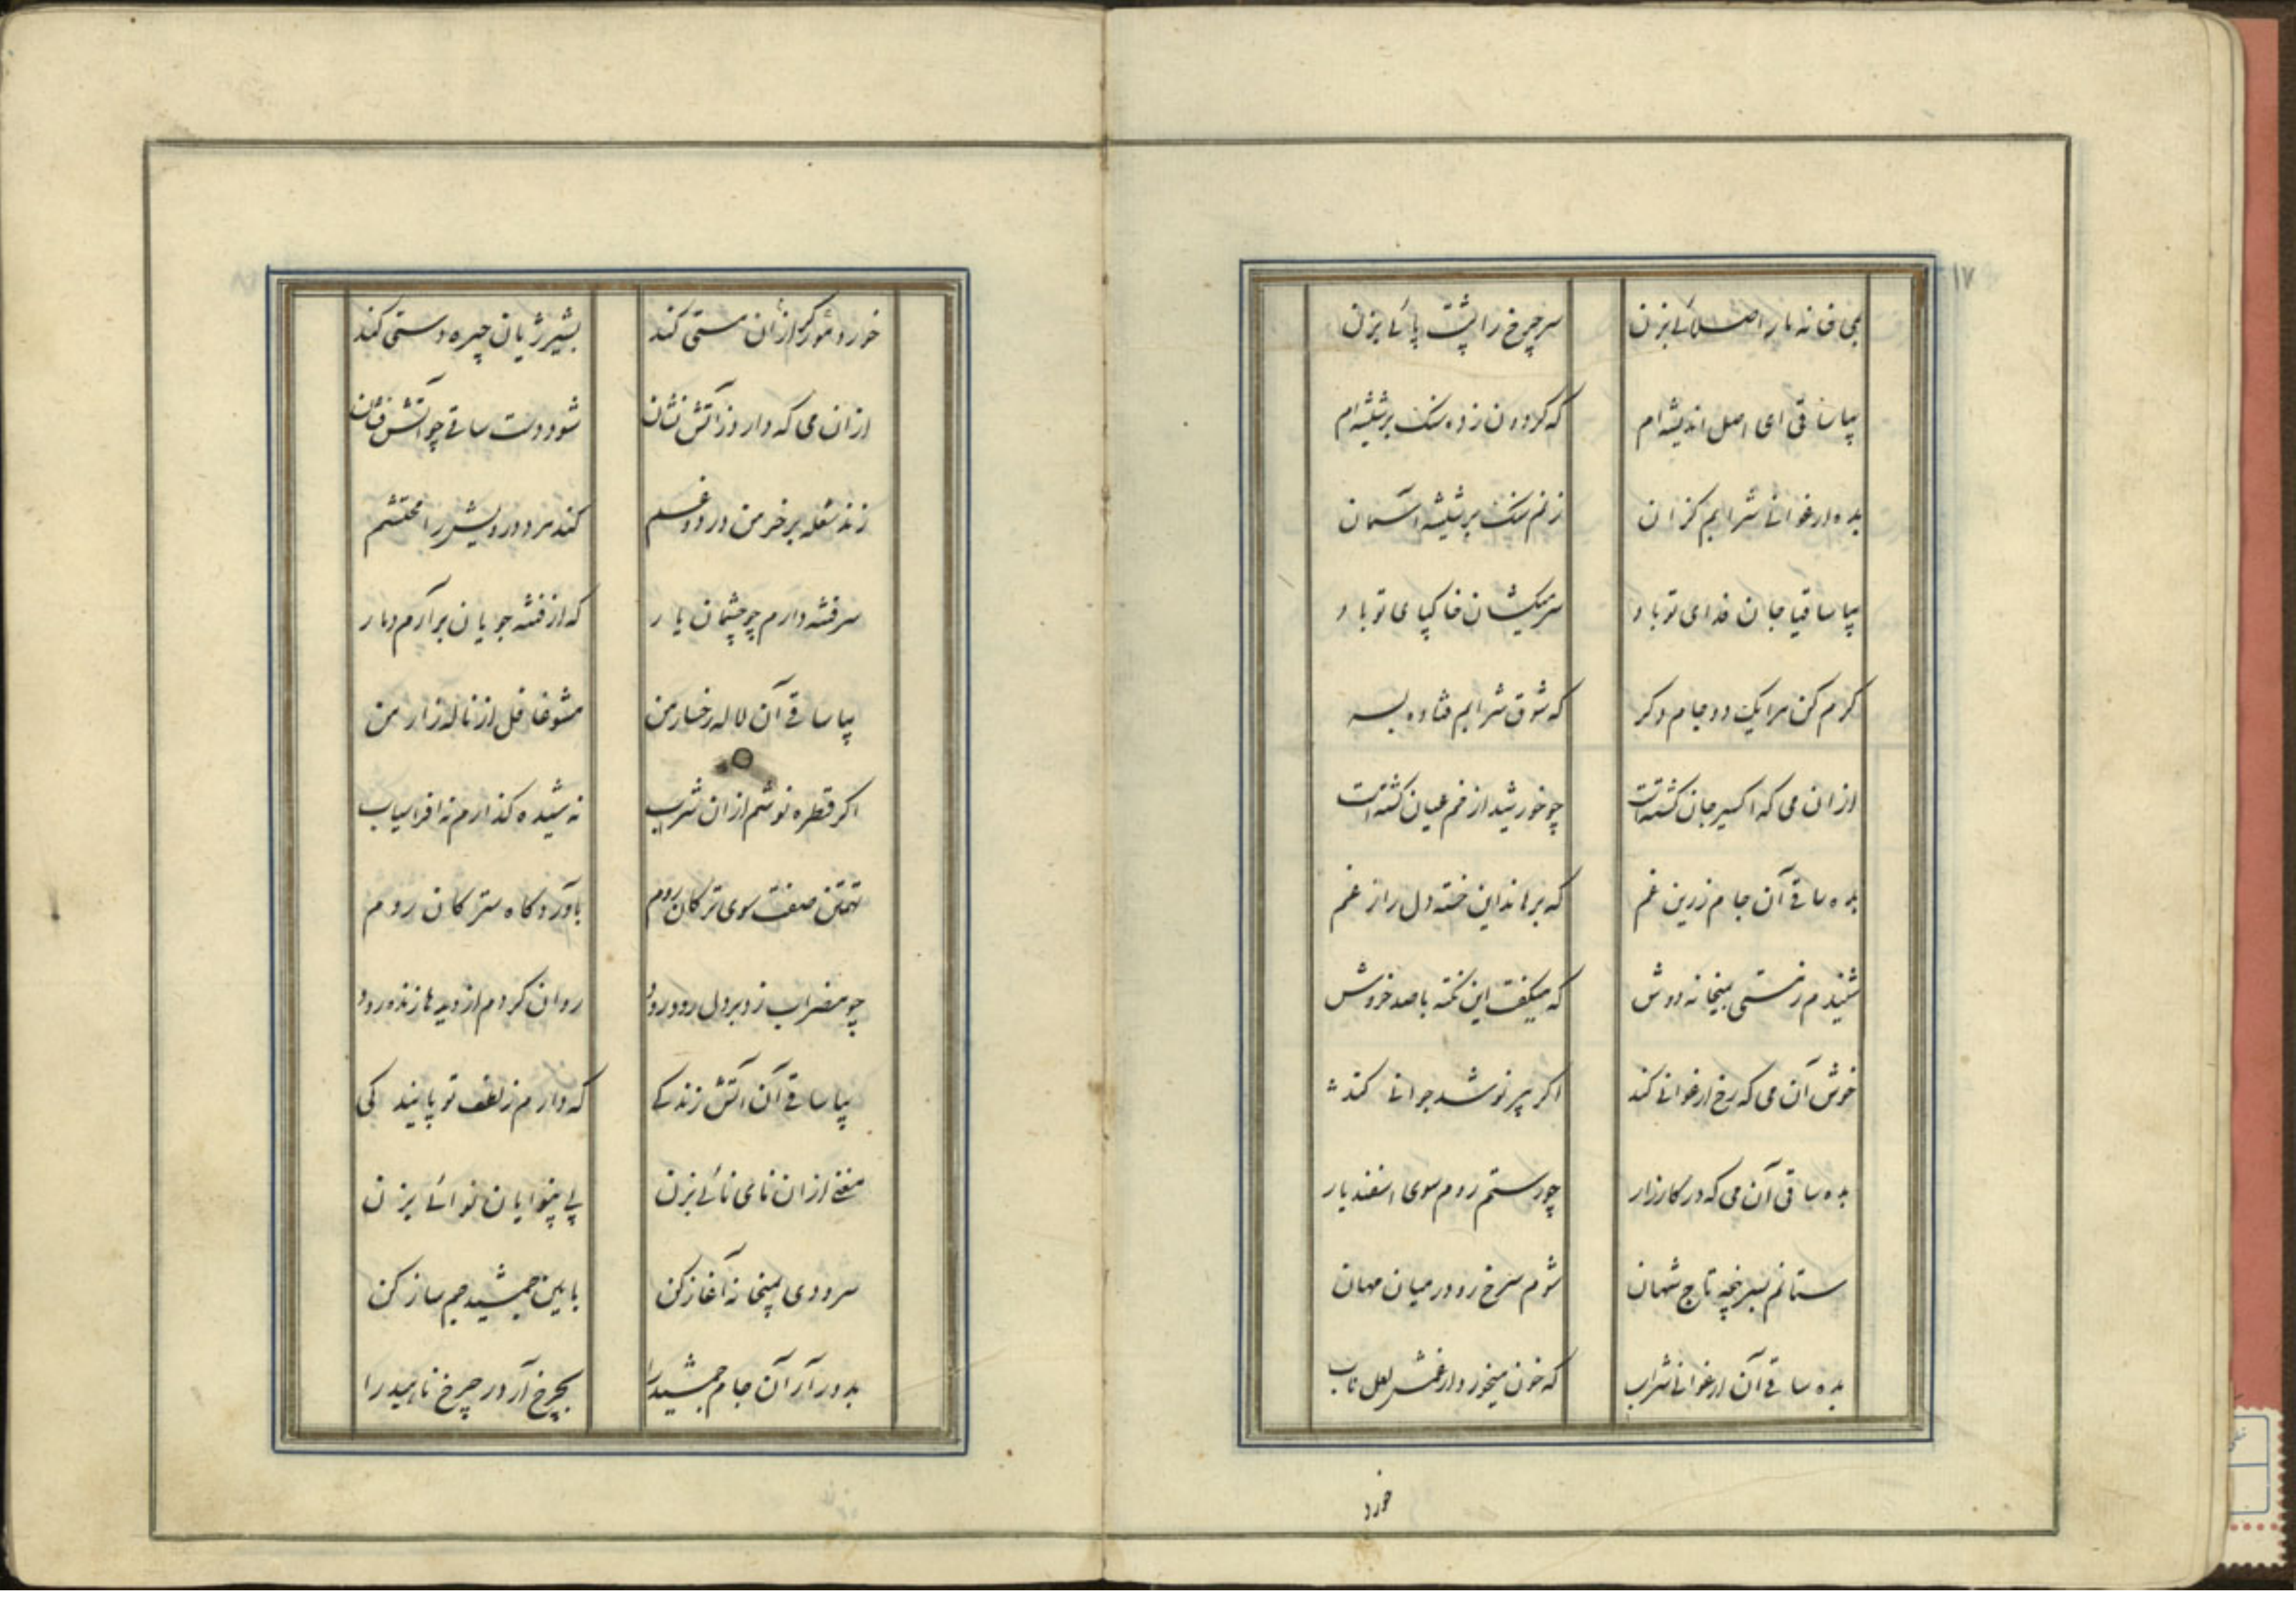 ۱۷
بمی خانه ما را صلائی بزن
سر چرخ را پشت پائی بزن
بیا ساقی ای اصل اندیشه ام
که کردون زده سنک بر شیشه ام
بده ارغوانی شرابم کزان
زنم سنک بر شیشه آسمان
بیا ساقیا جان فدای تو باد
سر میکشان خاکپای تو باد
کرم کن مرا یک دو جام دکر
که شوق شرابم فتاده بسر
ازان می که اکسیر جان کشته است
چو خورشید از خم عیان کشته است
بده ساقی آن جام زرین غم
که برهاند این خسته دل را ز غم
شنیدم ز مستی بمیخانه دوش
که میکفت این نکته با صد خروش
خوش آن می که رخ ارغوانی کند
اکر پیر نوشد جوانی کند
بده ساقی آن می که در کارزار
چو رستم روم سوی اسفندیار
ستانم بسرپنجه تاج شهان
شوم سرخ رو در میان مهان
بده ساقی آن ارغوانی شراب
که خون میخورد از غمش لعل ناب
خورد
خورد مور کر ازان مستی کند
بشیر ژیان چیره دستی کند
ازان می که دارد ز آتش نشان
شود دست ساقی چو آتش فشان
زند شعله بر خرمن درد و غم
کند مرد درویش را محتشم
سر فتنه دارم چو چشمان یار
که از فتنه جویان برآرم دمار
بیا ساقی آن لاله رخسار من
مشو غافل از ناله زار من
اکر قطره نوشم ازان شراب
نه شیده کذارم نه افراسیاب
تهمتن صفت سوی ترکان روم
بآوردکاه سترکان روم
چو مضراب زد بر دل رود رود
روان کردم از دیدها زنده رود
بیا ساقی آن آتش زندکی
که دارم ز لطف تو پایندکی
مغنی ازان نای نائی بزن
پی بینوایان نوائی بزن
سرودی بمیخانه آغاز کن
بآیین جمشید جم ساز کن
بدور آر آن جام جمشید را
بچرخ آر در چرخ ناهید را